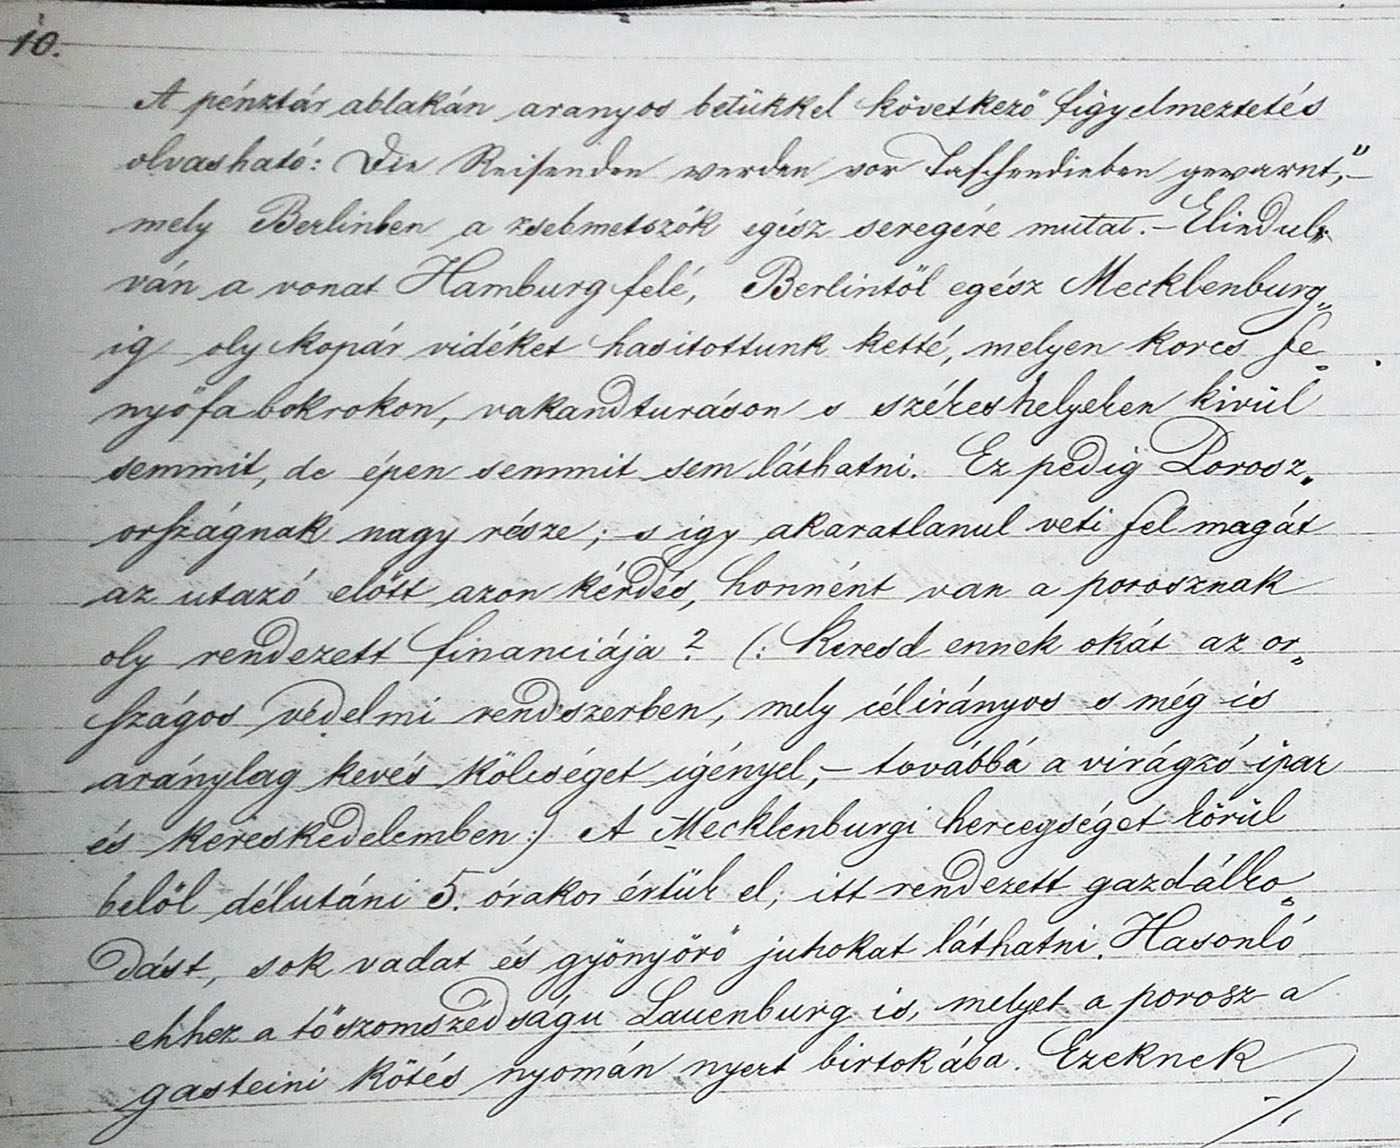 10.
A pénztár ablakán aranyos betükkel következő figyelmeztetés
olvasható: Die Reisenden werden vor Taschendieben gewarnt,"–
mely Berlinben a zsebmetszők egész seregére mutat. – Elindul-
ván a vonat Hamburg felé, Berlintöl egész Mecklenburg„
ig oly kopár vidéket hasitottunk ketté, melyen korcs fe„
nyőfa bokrokon, vakandturáson s székeshelyeken kivül
semmit, de épen semmit sem láthatni. Ez pedig Porosz„
országnak nagy része; s igy akaratlanul veti fel magát
az utazó előtt azon kérdés, honnént van a porosznak
oly rendezett financiája? (: Keresd ennek okát az or„
szágos védelmi rendszerben, mely célirányos s még is
aránylag kevés kölcséget igényel, – továbbá a virágzó ipar
és kereskedelemben:) A Mecklenburgi hercegséget körül
belöl délutáni 5. órakor értük el; itt rendezett gazdálko„
dást, sok vadat és gyönyörő juhokat láthatni. Hasonló
ehhez a tőszomszédságu Lauenburg is, melyet a porosz a
gasteini kötés nyomán nyert birtokába. Ezeknek